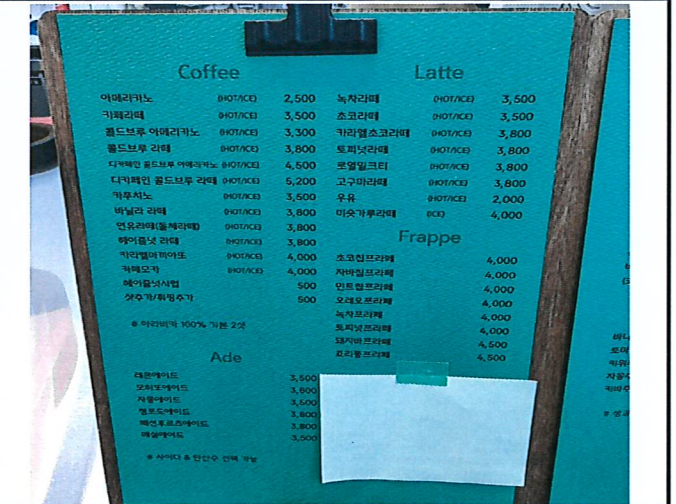 Coffee
아메리카노 (HOT/ICE) 2,500
카페라떼 (HOT/ICE) 3,500
콜드브루 아메리카노 (HOT/ICE) 3,300
콜드브루 라떼 (HOT/ICE) 3,800
디카페인 콜드브루 아메리카노 (HOT/ICE) 4,500
디카페인 콜드브루 라떼 (HOT/ICE) 5,200
카푸치노 (HOT/ICE) 3,500
바닐라 라떼 (HOT/ICE) 3,800
연유라떼(돌체라떼) (HOT/ICE) 3,800
헤이즐넛 라떼 (HOT/ICE) 3,800
카라멜마끼아또 (HOT/ICE) 4,000
카페모카 (HOT/ICE) 4,000
헤이즐넛시럽 500
샷추가/휘핑추가 500
# 아라비카 100% 기본 2샷
Ade
레몬에이드 3,500
모히또에이드 3,800
자몽에이드 3,500
청포도에이드 3,800
패션후르츠에이드 3,800
매실에이드 3,500
# 사이다 & 탄산수 선택 가능
Latte
녹차라떼 (HOT/ICE) 3,500
초코라떼 (HOT/ICE) 3,500
카라멜초코라떼 (HOT/ICE) 3,800
토피넛라떼 (HOT/ICE) 3,800
로얄밀크티 (HOT/ICE) 3,800
고구마라떼 (HOT/ICE) 3,800
우유 (HOT/ICE) 2,000
미숫가루라떼 (ICE) 4,000
Frappe
초코칩프라페 4,000
자바칩프라페 4,000
민트칩프라페 4,000
오레오프라페 4,000
녹차프라페 4,000
토피넛프라페 4,000
돼지바프라페 4,500
쵸리퐁프라페 4,500